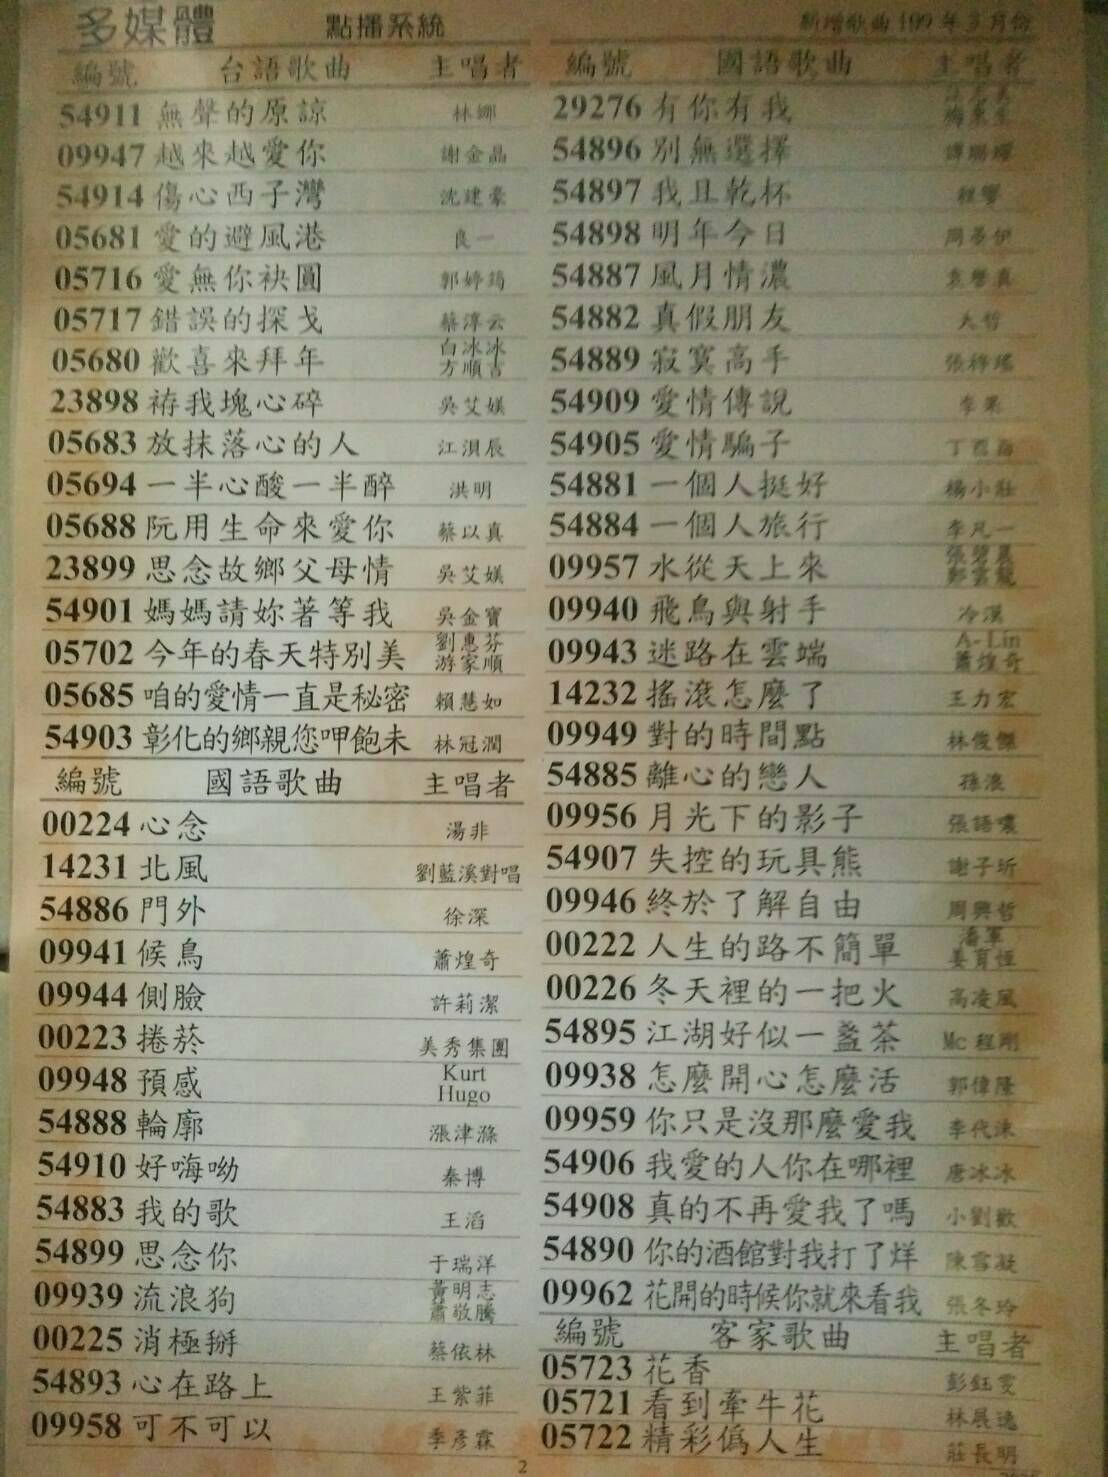 多媒體 點播系統 新增歌曲 109 年 3 月份
編號 台語歌曲 主唱者
54911 無聲的原諒 林娜
09947 越來越愛你 謝金晶
54914 傷心西子灣 沈建豪
05681 愛的避風港 良一
05716 愛無你袂圓 郭婷筠
05717 錯誤的探戈 蔡淳云
05680 歡喜來拜年 白冰冰
方順吉
23898 袸我塊心碎 吳艾媄
05683 放抹落心的人 江浿辰
05694 一半心酸一半醉 洪明
05688 阮用生命來愛你 蔡以真
23899 思念故鄉父母情 吳艾媄
54901 媽媽請妳著等我 吳金寶
05702 今年的春天特別美 劉惠芬
游家順
05685 咱的愛情一直是秘密 賴慧如
54903 彰化的鄉親您呷飽未 林冠潤
編號 國語歌曲 主唱者
00224 心念 湯非
14231 北風 劉藍溪對唱
54886 門外 徐深
09941 候鳥 蕭煌奇
09944 側臉 許莉潔
00223 捲菸 美秀集團
09948 預感 Kurt
Hugo
54888 輪廓 漲津滌
54910 好嗨呦 秦博
54883 我的歌 王滔
54899 思念你 于瑞洋
09939 流浪狗 黃明志
蕭敬騰
00225 消極掰 蔡依林
54893 心在路上 王紫菲
09958 可不可以 季彥霖
編號 國語歌曲 主唱者
29276 有你有我
54896 別無選擇
54897 我且乾杯 程響
54898 明年今日
54887 風月情濃
54882 真假朋友 大哲
54889 寂寞高手
54909 愛情傳說 李果
54905 愛情騙子
54881 一個人挺好 楊小壯
54884 一個人旅行 李凡一
09957 水從天上來 張碧晨
鄭雲龍
09940 飛鳥與射手 冷漠
09943 迷路在雲端 A-Lin
蕭煌奇
14232 搖滾怎麼了 王力宏
09949 對的時間點 林俊傑
54885 離心的戀人 孫浪
09956 月光下的影子 張語噥
54907 失控的玩具熊 謝子圻
09946 終於了解自由 周興哲
00222 人生的路不簡單 潘軍
姜育恆
00226 冬天裡的一把火 高凌風
54895 江湖好似一盞茶 Mc 程剛
09938 怎麼開心怎麼活 郭偉隆
09959 你只是沒那麼愛我 李代沫
54906 我愛的人你在哪裡 唐冰冰
54908 真的不再愛我了嗎 小劉歡
54890 你的酒館對我打了烊 陳雪凝
09962 花開的時候你就來看我 張冬玲
編號 客家歌曲 主唱者
05723 花香 彭鈺雯
05721 看到牽牛花 林展逸
05722 精彩僞人生 莊長明
2